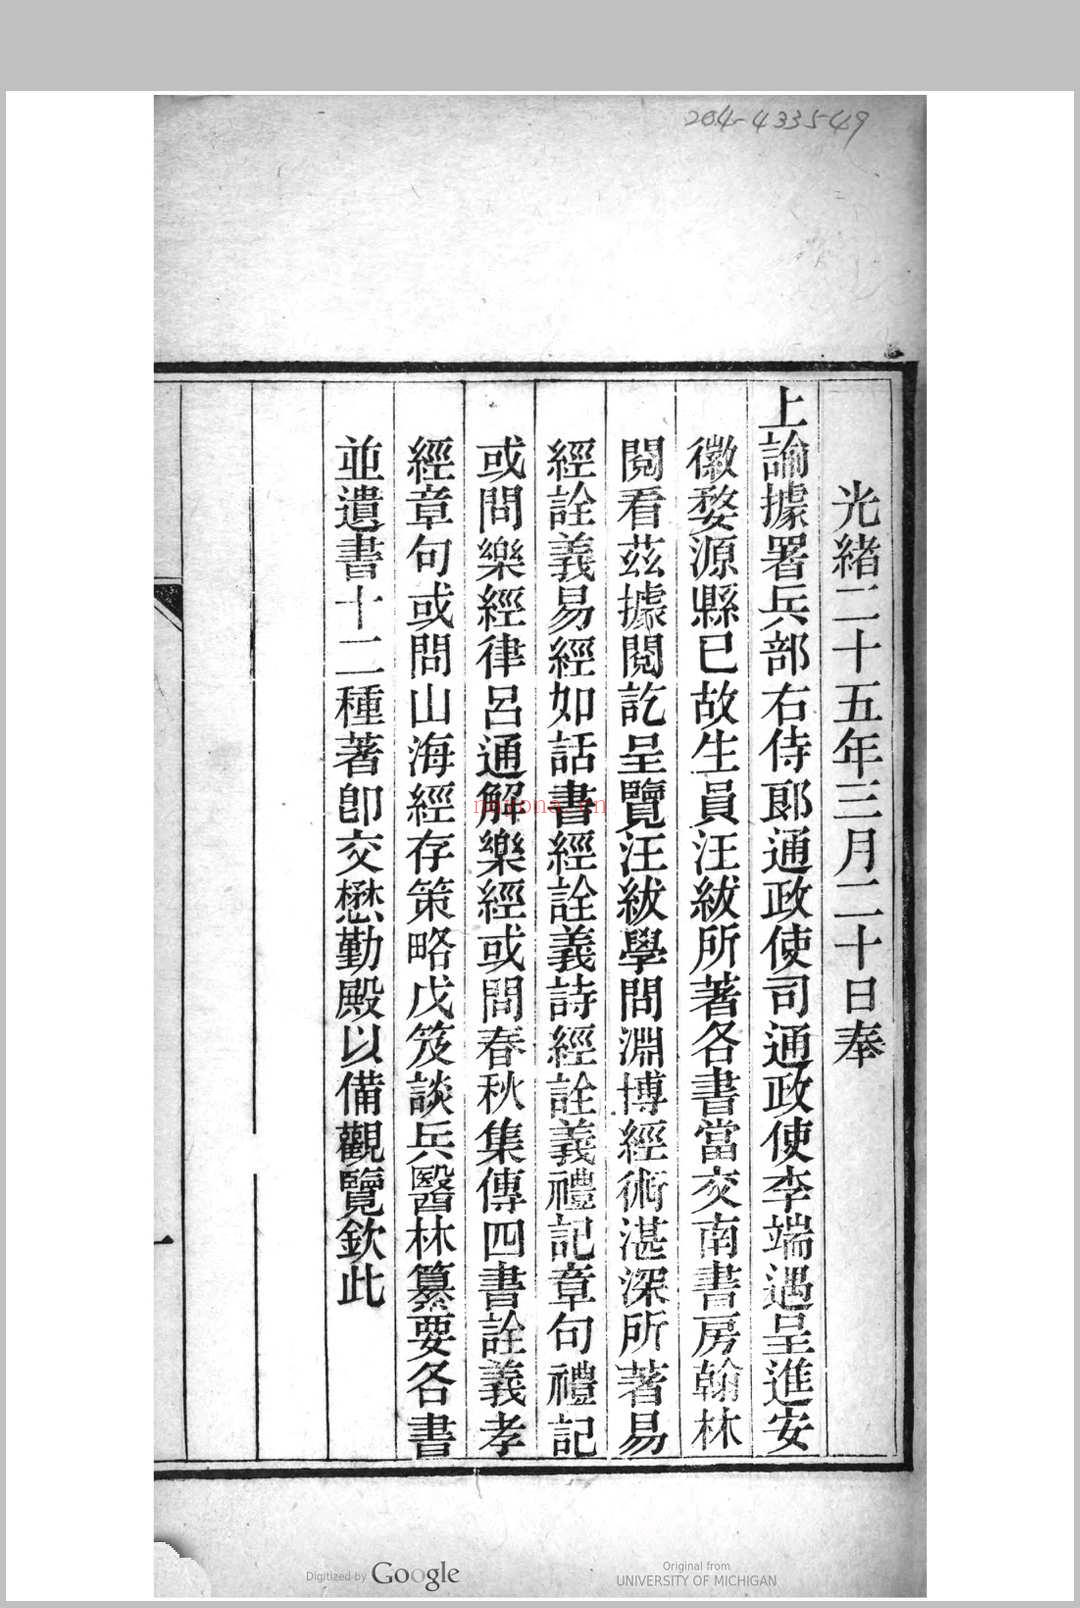 204-433549
光緒二十五年三月二十日奉
上諭據署兵部右侍郎通政使司通政使李端遇呈進安
徽婺源縣已故生員汪紱所著各書當交南書房翰林
閱看茲據閱訖呈覽汪紱學問淵博經術湛深所著易
經詮義易經如話書經詮義詩經詮義禮記章句禮記
或問樂經律呂通解樂經或問春秋集傳四書詮義孝
經章句或問山海經存策略戊笈談兵醫林纂要各書
並遺書十二種著卽交懋勤殿以備觀覽欽此
Digitized by Google
Original from
UNIVERSITY OF MICHIGAN